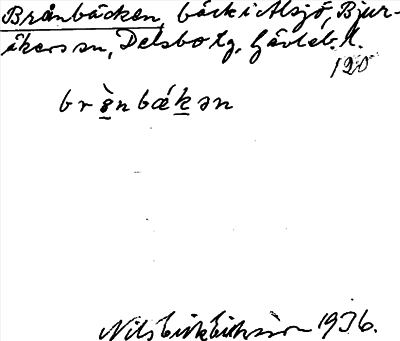 Brånbäcken, bäck i Alsjö, Bjur-
åkers sn, Delsbo tg, Gävleb. l.
120
brə̀nbǽkən
Nils Eriksson 1936.